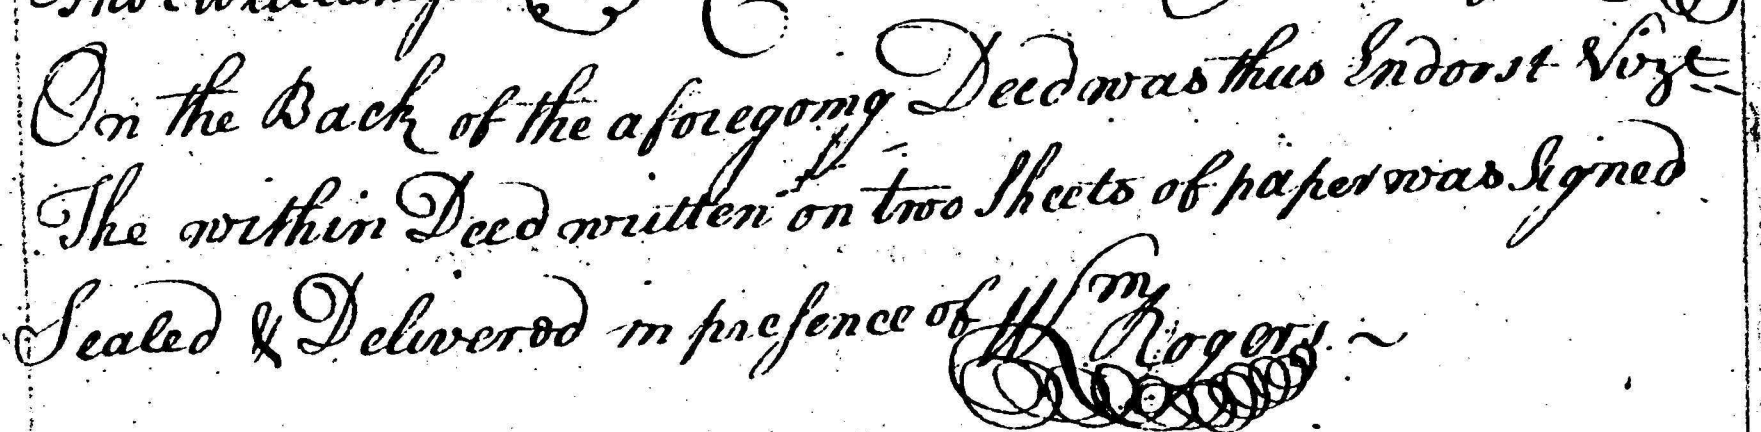 On the Back of the aforegoing Deed was thus Endorst Vizt
The within Deed written on two Sheets of paper was Signed
Sealed & Delivered in presence of Wm Rogers ~